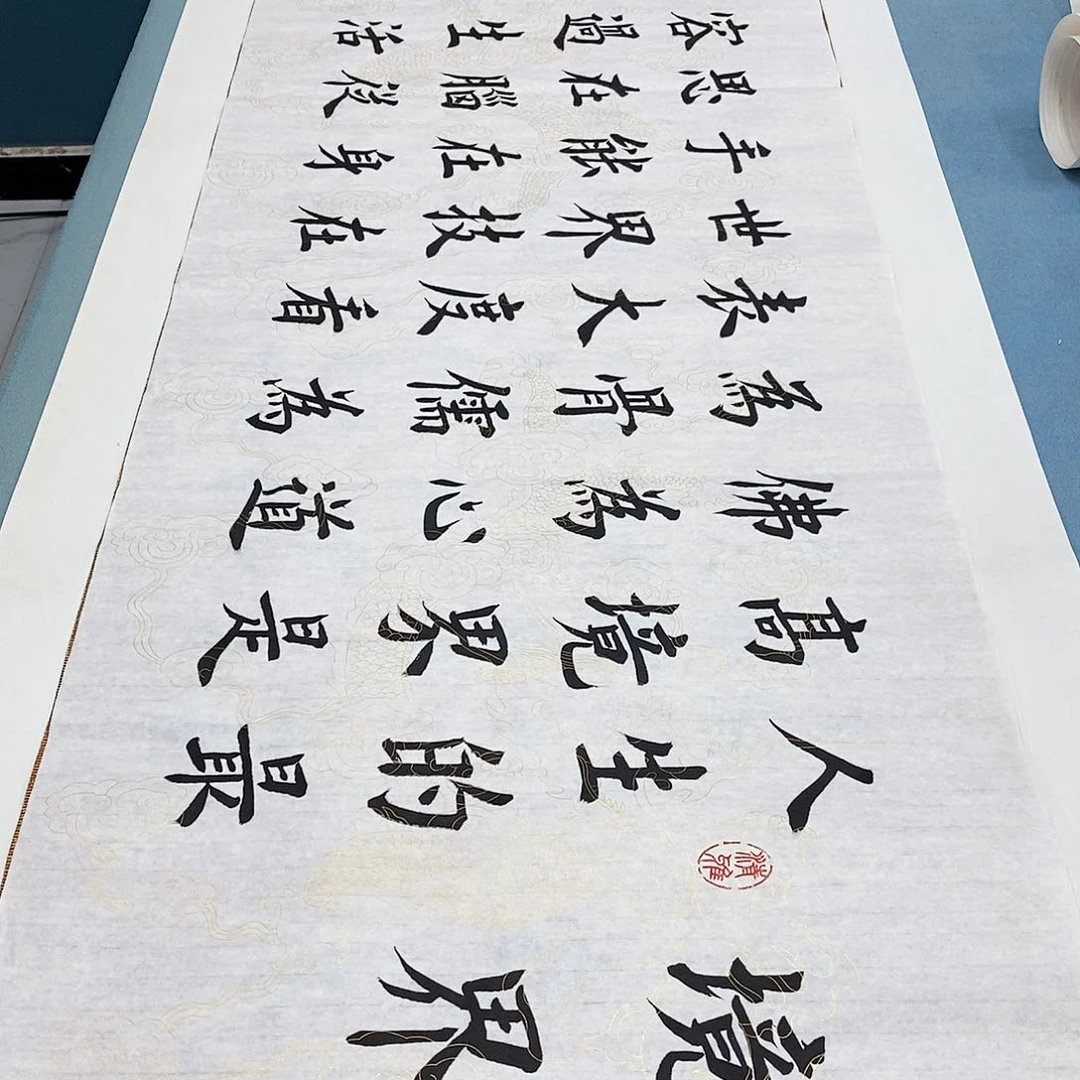 境界
人生的最
高境界是
佛為心道
為骨儒為
表大度看
世界技在
手能在身
思在腦從
容過生活